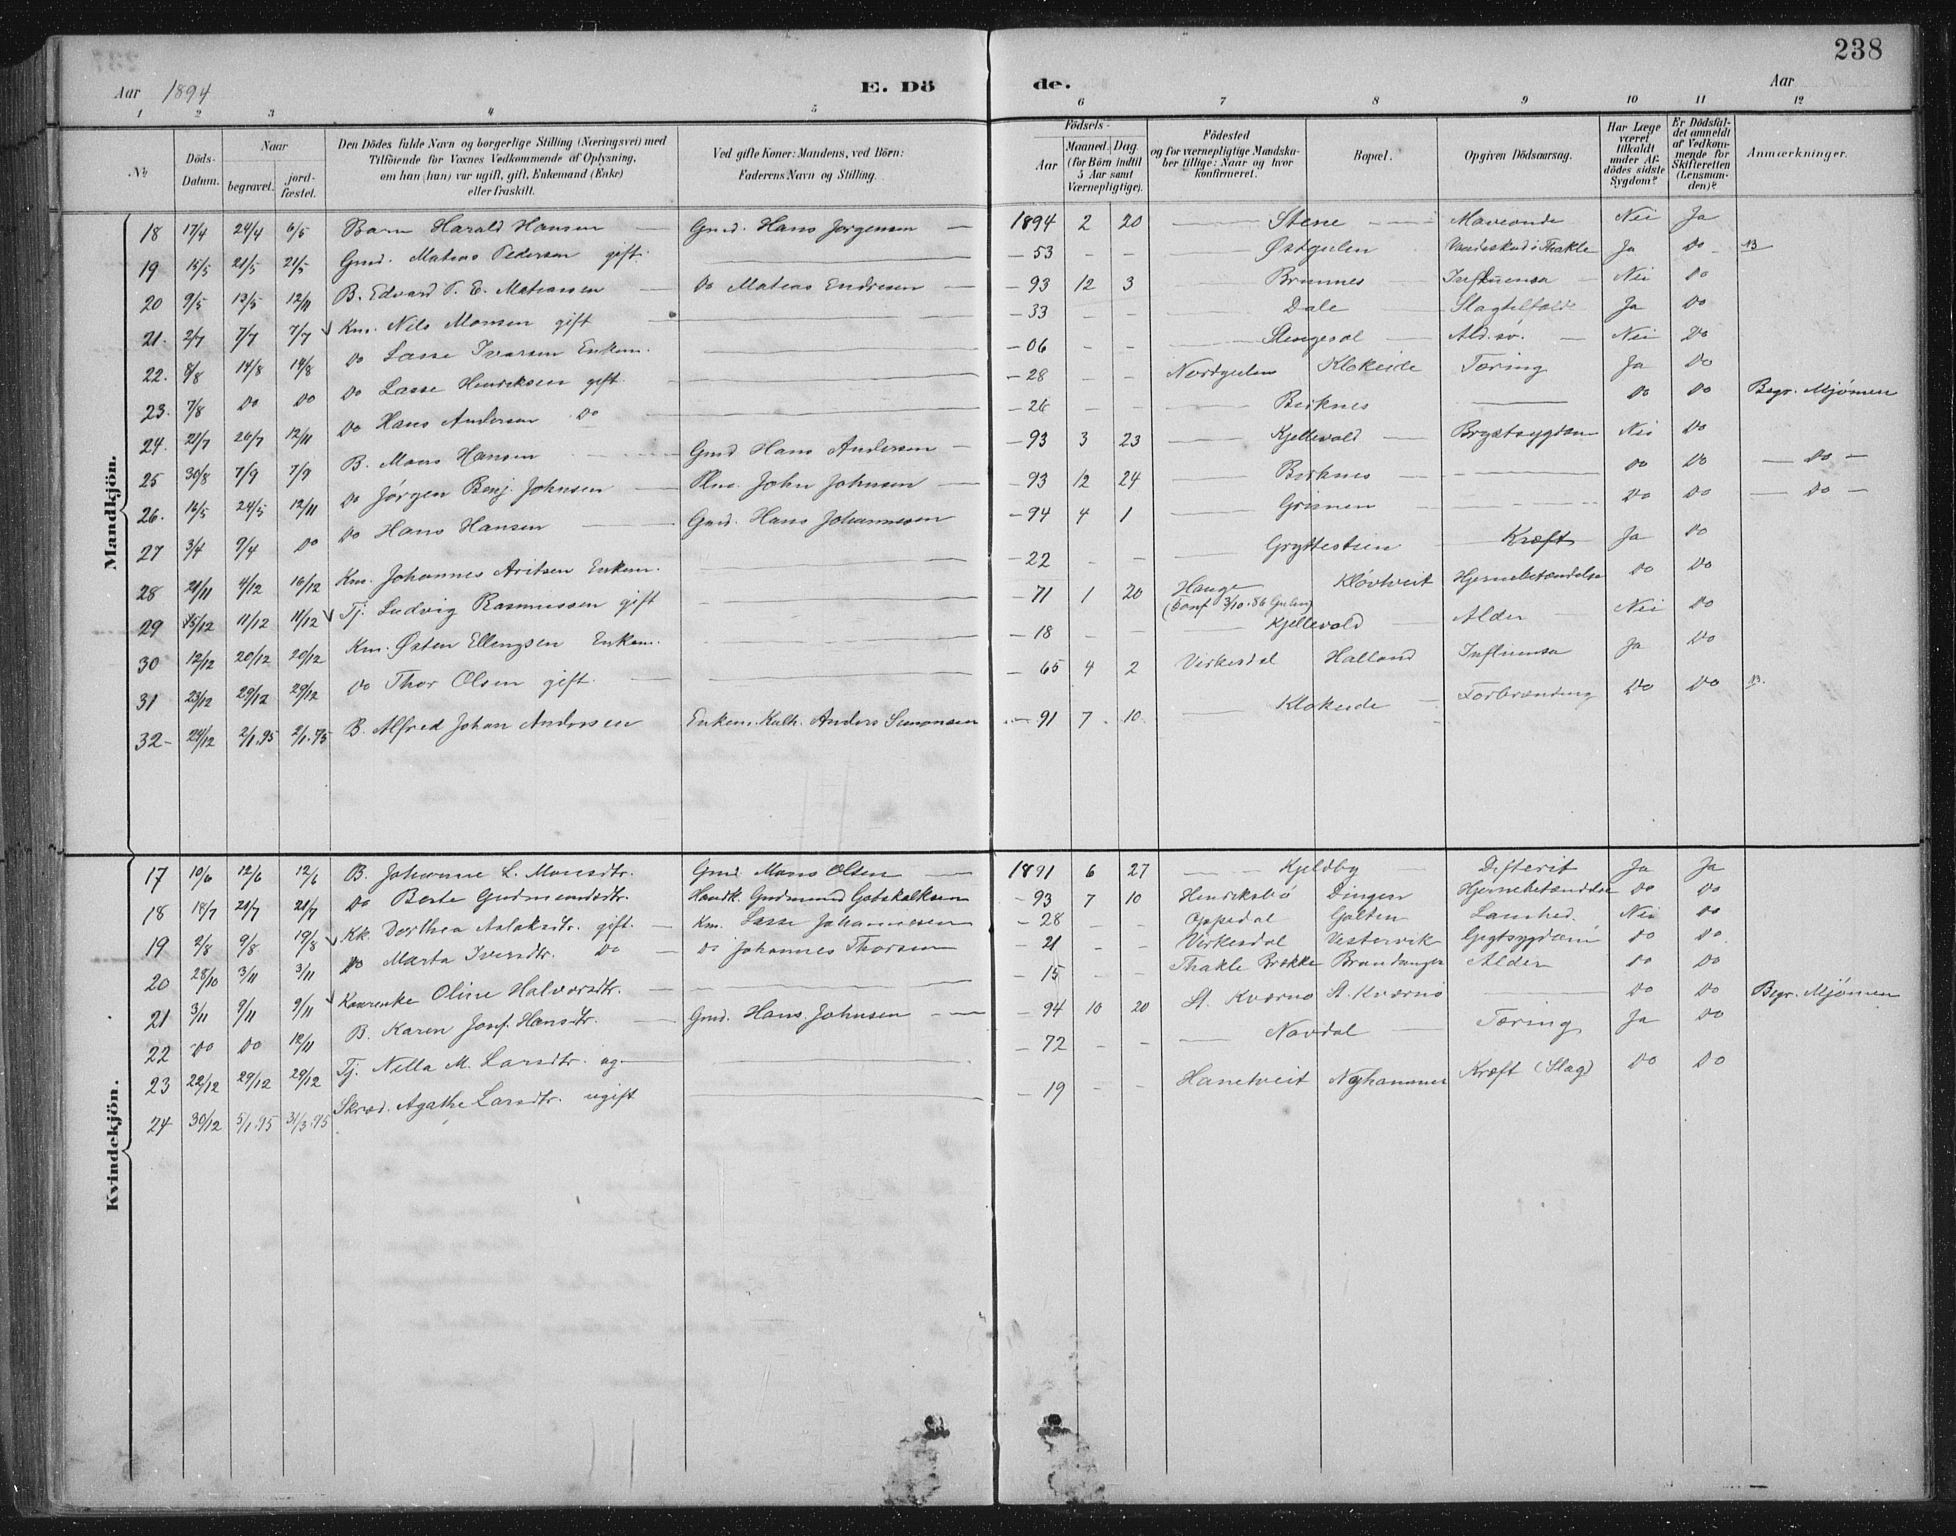 238
Aar 1894 E. Dö de. Aar
1 2 3 4 5 6 7 8 9 10 11 12
№
Döds-Datum.
Naar begravet. jordfæstet.
Den Dödes fulde Navn og borgerlige Stilling (Næringsvei) med Tilföiende for Voxnes Vedkommende af Oplysning, om han (hun) var ugift, gift, Enkemand (Enke) eller fraskilt.
Ved gifte Koner: Mandens, ved Börn: Faderens Navn og Stilling.
Födsels- Aar Maaned. Dag (for Börn indtil 5 Aar samt Værnepligtige).
Födested og for værnepligtige Mandskaber tillige: Naar og hvor konfirmeret.
Bopæl.
Opgiven Dödsaarsag.
Har Læge været tilkaldt under Afdödes sidste Sygdom?
Er Dödsfaldet anmeldt af Vedkommende for Skifteretten (Lensmanden)?
Anmærkninger.
Mandkjön.
18 17/4 24/4 6/5 Barn Harald Hansen — Gmd. Hans Jørgensen — 1894 2 20 — Stene — Nei Ja
19 15/5 21/5 21/5 Gmd. Matias Pedersen gift. — 53 - - — Østgulen Ja Do
20 9/5 13/5 12/11 B. Edvard T. E. Matiassen — Do Matias Endresen — 93 12 3 — Brunnes — Influensa — Nei Do
21. 2/7 7/7 7/7 Km. Nils Monsen gift — 33 - - — Dale — Slagtilfælde Ja Do
22. 8/8 14/8 14/8 Do Lasse Ivarsen Enkem. — 06 - - — Nei Do
23. 7/8 Do Do Do Lasse Henriksen gift. — 28 - - Nordgulen Klokeide Tæring Ja Do
24. 21/7 26/7 12/11 Do Hans Andersen Do — 26 - - — Birknes — Do Do Begr. Mjømen
25 30/8 7/9 7/9 B. Mons Hansen — Gmd Hans Andersen — 93 3 23 — Kjellevold — Brystsygdom Nei Do
26. 16/5 24/5 12/11 Do Jørgen Benj. Johnsen — Plm. John Johnsen — 93 12 24 — Birknes — Do Do — Do —
27 3/4 9/4 Do Do Hans Hansen — Gmd. Hans Johannessen — 94 4 1 — — Do Do — Do —
28 21/11 4/12 16/12 Km. Johannes Enkem. — 22 - - — Kræft Ja Do
29 5/12 11/12 11/12 Tj. Ludvig Rasmussen gift — 71 1 20 Hauge (Conf 3/10. 86 Gulen) Kløvtveit Hjernebetændelse Do Do
30 12/12 20/12 20/12 Km. Østen Ellingsen Enkem. — 18 - - — Kjellevold — Alder Nei Do
31 23/12 29/12 29/12 Do Thor Olsen gift. — 65 4 2 Virkesdal Halland Influensa Ja Do
32 - 24/12 2/1.95 2/1.95 B. Alfred Johan Andersen Enkem. Kath. Anders Simonsen — 91 7 10 — Klokeide — Forbrænding Do Do
Kvindekjön.
17 10/6 12/6 12/6 B. Johanne L. Monsdtr. Gmd Mons Olsen — 1891 6 27 — Kjeldby — Difterit Ja Ja
18 18/7 21/7 21/7 Do Berte Gudmundsdtr. Handk. Gudmund Gotskalksen — 93 7 10 Henriksbø Dingen Hjernebetændelse Do Do
19 2/8 9/8 19/8 Kk. Dorthea Aslaksdtr. gift. — Km. Lasse Johannesen — 28 - - Oppedal Galten Lamhed. Nei Do
20 28/10 3/11 3/11 Do Marta Iversdtr. Do — Do Johannes Thorsen — 21 - - Virkesdal Vestervik Do Do
21 3/11 9/11 9/11 Oline Halvorsdtr. — 15 - - Thakle Brække Brandanger Alder Do Do
22 Do Do 12/11 B. Karen Josef. Hansdtr. — Gmd. Hans Johnsen — 94 10 20 St. Kværnø St. Kværnø — Do Do Begr. Mjømen
23 22/12 29/12 29/12 Tj. Nella M. Larsdtr. ug — 72 - - — Navdal — Tæring Ja Do
24 30/12 5/1.95 31/3.95 Skræd. Agathe Larsdtr. ugift — 19 - - Hanetveit Nyhammer Kræft (Slag) Do Do